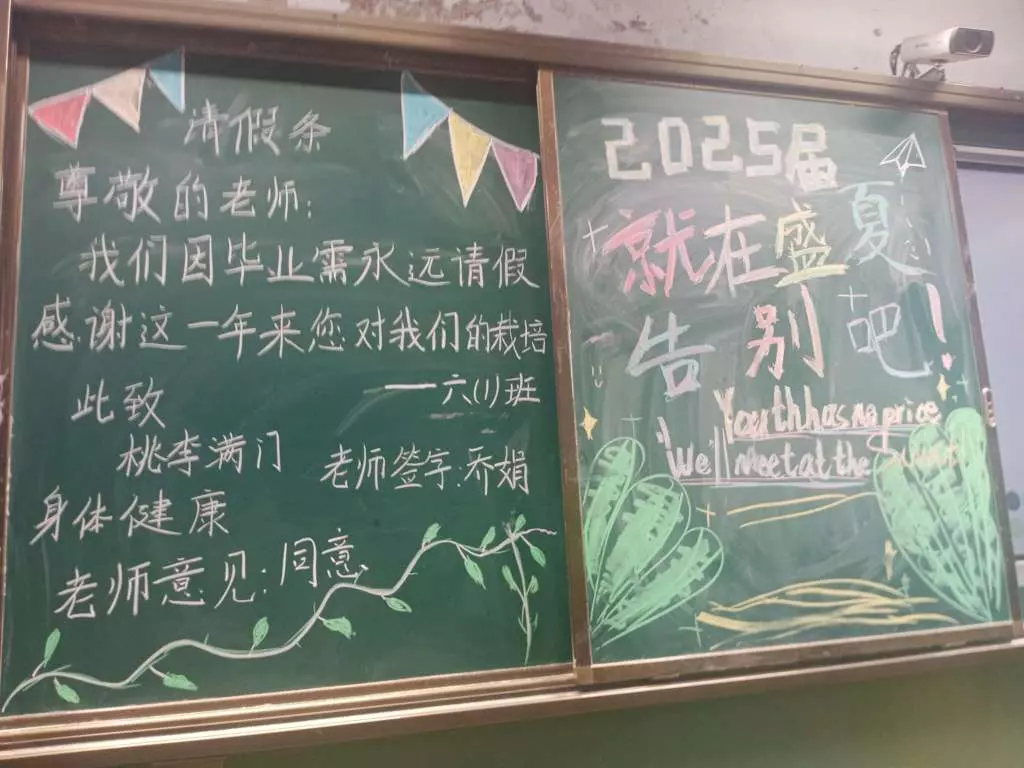 请假条
尊敬的老师:
我们因毕业需永远请假
感谢这一年来您对我们的栽培
此致
——六(1)班
桃李满门
老师签字:乔娟
身体健康
老师意见:同意
2025届
就在盛夏
告别吧!
Youth has no price
We'll meet at the